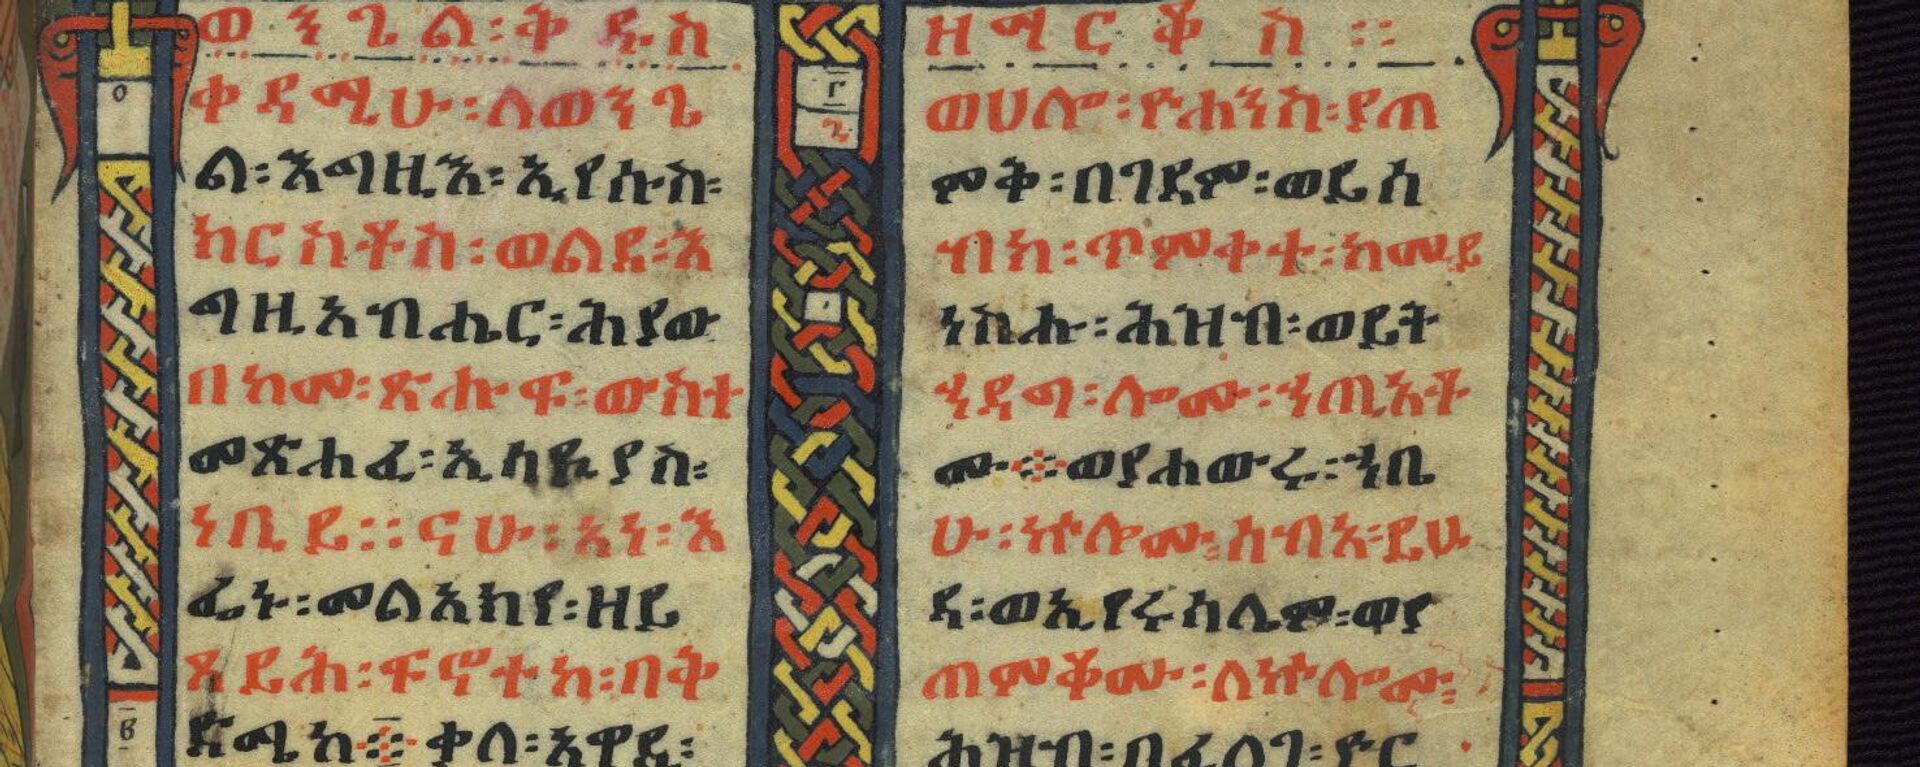 ወንጌል፡ቅዱስ
ቀዳሚሁ፡ለወንጌ
ል፡እግዚእ፡ኢየሱስ፡
ክርስቶስ፡ወልደ፡እ
ግዚአብሔር፡ሕያው
በከመ፡ጽሑፍ፡ውስተ
መጽሐፈ፡ኢሳይያስ፡
ነቢይ፡፡ናሁ፡አነ፡እ
ፌኑ፡መልአክየ፡ዘይ
ጸይሕ፡ፍኖተከ፡በቅ
ድሜከ፨ቃለ፡አዋዲ፡
ዘማርቆስ፡፡
ወሀሎ፡ዮሐንስ፡ያጠ
ምቅ፡በገዳም፡ወይሰ
ብክ፡ጥምቀተ፡ከመይ
ነስሑ፡ሕዝብ፡ወይት
ኀደግ፡ሎሙ፡ኀጢአቶ
ሙ፨ወያሐውሩ፡ኀቤ
ሁ፡ኵሎሙ፡ሰብአ፡ይሁ
ዳ፡ወኢየሩሳሌም፡ወያ
ጠምቆሙ፡ለኵሎሙ፡
ሕዝብ፡በፈለገ፡ዮር